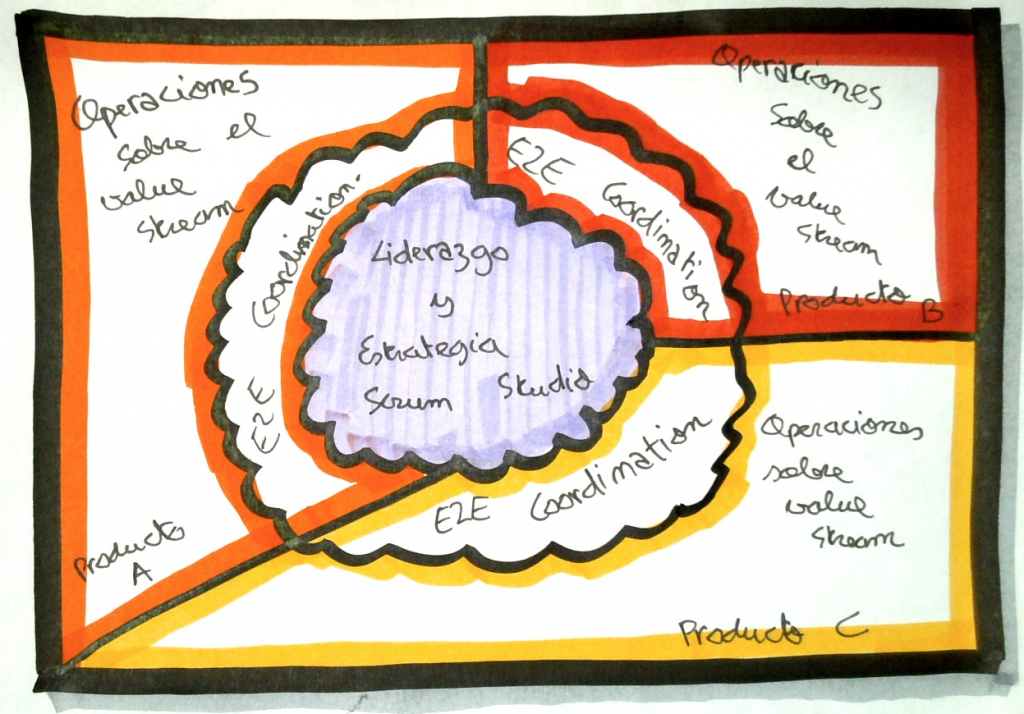 Operaciones
sobre el
value
stream
E2E Coordination.
Producto
A
Operaciones
sobre
el
value
stream
Producto B
E2E Coordination
Liderazgo
y
Estrategia
Scrum Studio
E2E Coordination
Operaciones
sobre
value
stream
Producto C